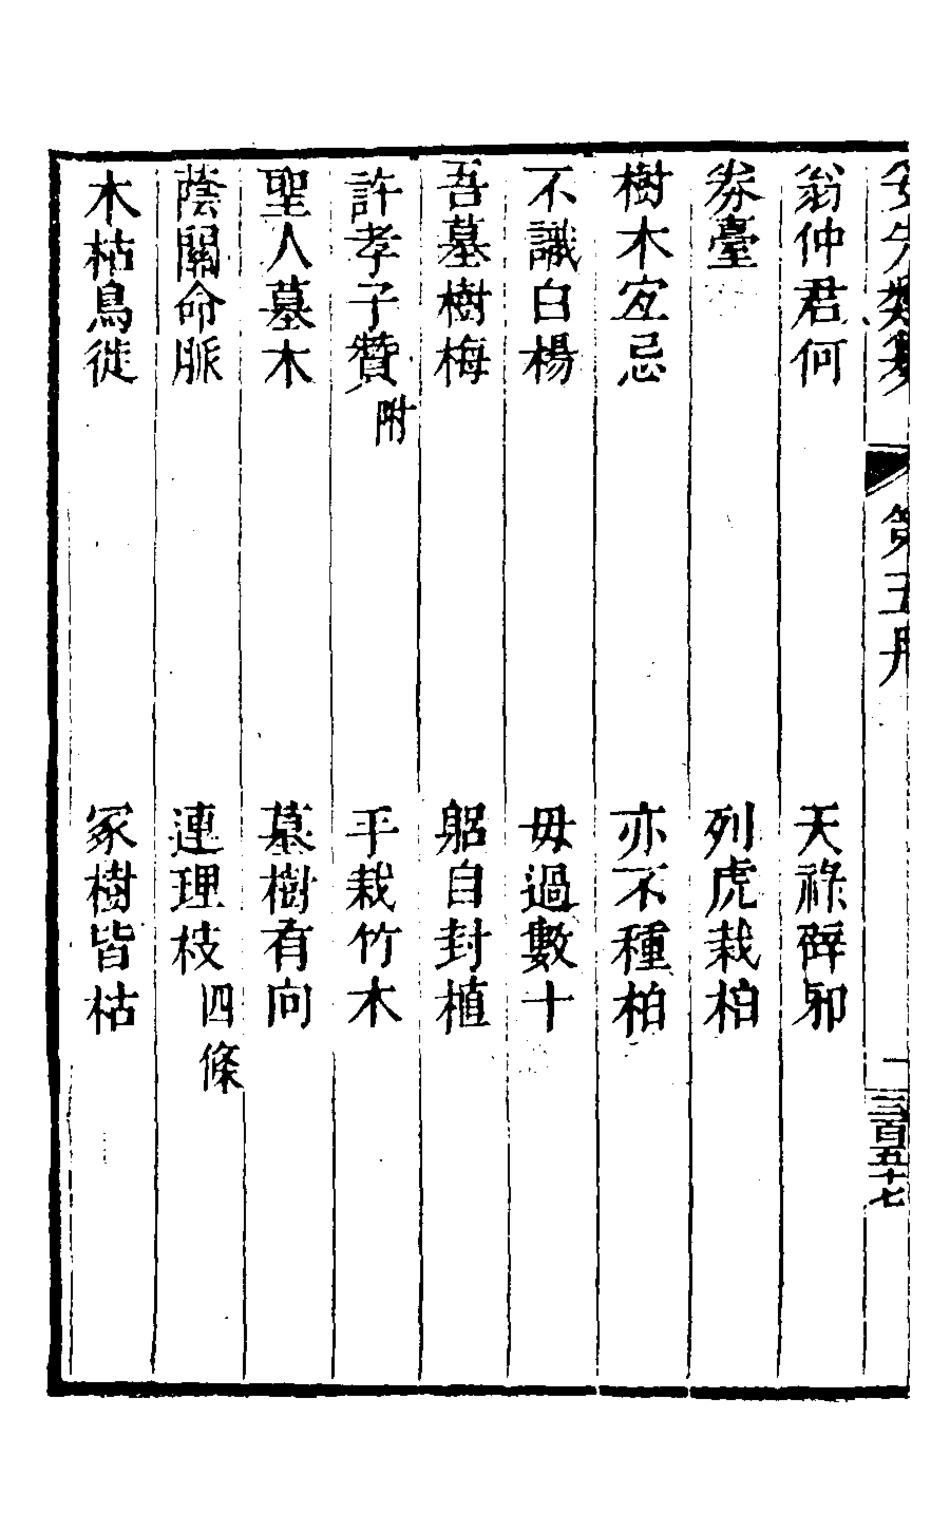 安先類纂 第五册 一 三百五十七
翁仲君何 天祿辟邪
券臺 列虎栽柏
樹木宜忌 亦不種柏
不識白楊 毋過數十
吾墓樹梅 躬自封植
許孝子贊附 平栽竹木
聖人墓木 墓樹有向
蔭關命脈 連理枝四條
木枯鳥徙 冢樹皆枯